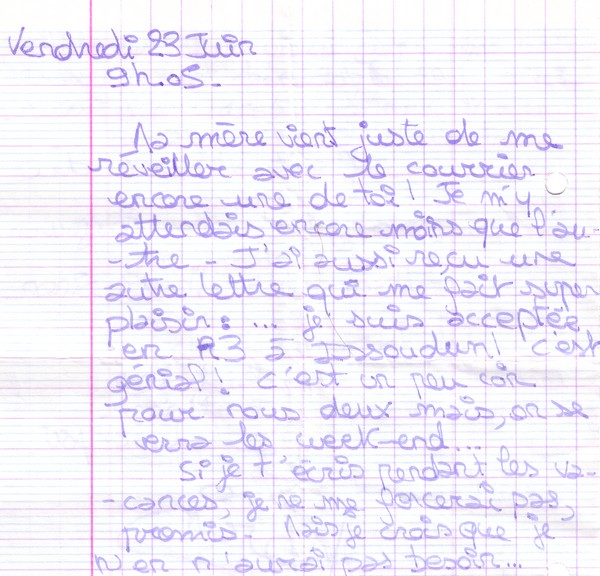 Vendredi 23 Juin
9h.05-
Ma mère vient juste de me
réveiller avec le courrier
encore une de toi! Je m'y
attendais encore moins que l'au-
-tre - J'ai aussi reçu une
autre lettre qui me fait super
plaisir: ... je suis acceptée
en F3 à Issoudun! c'est
génial! c'est un peu con
pour nous deux mais, on se
verra les week-end...
Si je t'écris pendant les va-
-cances, je ne me forcerai pas,
promis- Mais je crois que je
n'en n'aurai pas besoin...